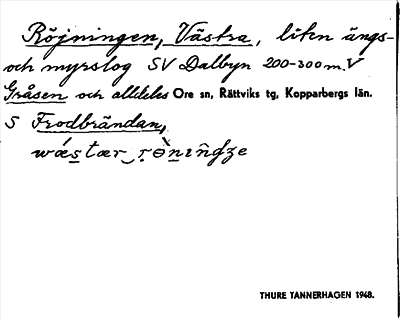 Röjningen, Västra, litn ängs-
och myrslog SV Dalbyn 200-300 m. V
Gråsen och alldeles Ore sn, Rättviks tg, Kopparbergs län.
S Frodbrändan,
wǽstær
THURE TANNERHAGEN 1948.